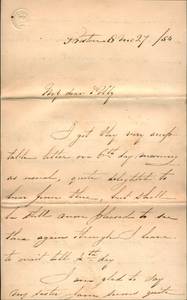 8 Mo 27 /80
My dear Polly
I got thy very accep
table letter on 6th day morning
as usual, quite delighted to
hear from thee, but shall
be still more pleased to see
thee again though I have
to wait till 7th day
I was glad to say
my sister